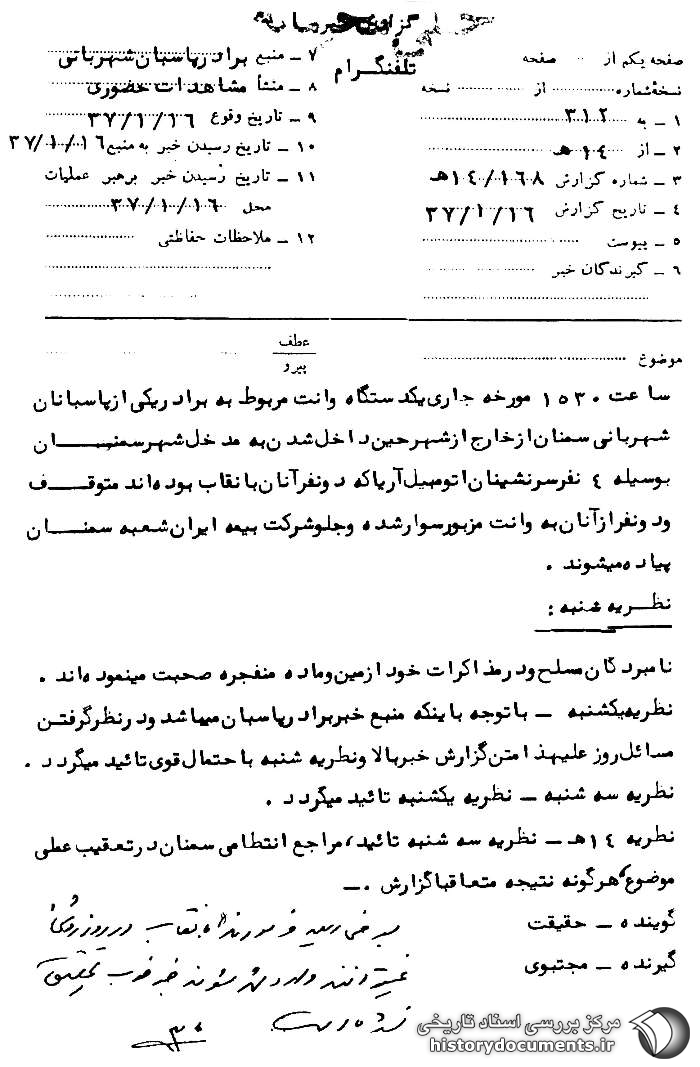 گزارش خبر
تلفنگرام
صفحه یکم از صفحه
نسخه شماره از نسخه
۱ ـ به ۳۱۲
۲ ـ از ۱٤ هـ
۳ ـ شماره گزارش ۱٤/۱۶۸ هـ
٤ ـ تاریخ گزارش ۳۷/۱/۱۶
۵ ـ پیوست
۶ ـ گیرندگان خبر
۷ ـ منبع برادر پاسبان شهربانی
۸ ـ منشأ مشاهدات حضوری
۹ ـ تاریخ وقوع ۳۷/۱۰/۱۶
۱۰ ـ تاریخ رسیدن خبر به منبع ۳۷/۱۰/۱۶
۱۱ ـ تاریخ رسیدن خبر برهبر عملیات
محل ۳۷/۱۰/۱۶
۱۲ ـ ملاحظات حفاظتی
موضوع
عطف
پیرو
ساعت ۱۵۳۰ مورخه جاری یکدستگاه وانت مربوط به برادر یکی از پاسبانان
شهربانی سمنان از خارج از شهر حین داخل شدن به مدخل شهر سمنــــان
بوسیله ٤ نفر سرنشینان اتومبیل آریا که دو نفر آنان با نقاب بوده اند متوقــف
و دو نفر از آنان به وانت مزبور سوار شده و جلو شرکت بیمه ایران شعبه سمنــان
پیاده میشوند .
نظــریه شنبه :
نامبردگان مسلح و در مذاکرات خود از مین و ماده منفجره صحبت مینموده اند .
نظریه یکشنبه ـ با توجه باینکه منبع خبر برادر پاسبان میباشد و در نظر گرفتن
مسائل روز علیهذا متن گزارش خبر بالا ونظریه شنبه با حتمال قوی تائید میگردد .
نظریه سه شنبه ـ نظریه یکشنبه تائید میگردد .
نظریه ۱٤ هـ ـ نظریه سه شنبه تائید، مراجع انتظامی سمنان در تعقیب عملی
موضوع، هرگونه نتیجه متعاقبا گزارش .ـ
گوینده ـ حقیقت
گیرنده ـ مجتبوی
در روز روشن
خبر خوب تحقیق
نشده است
۳۰
مرکز بررسی اسناد تاریخی
historydocuments.ir